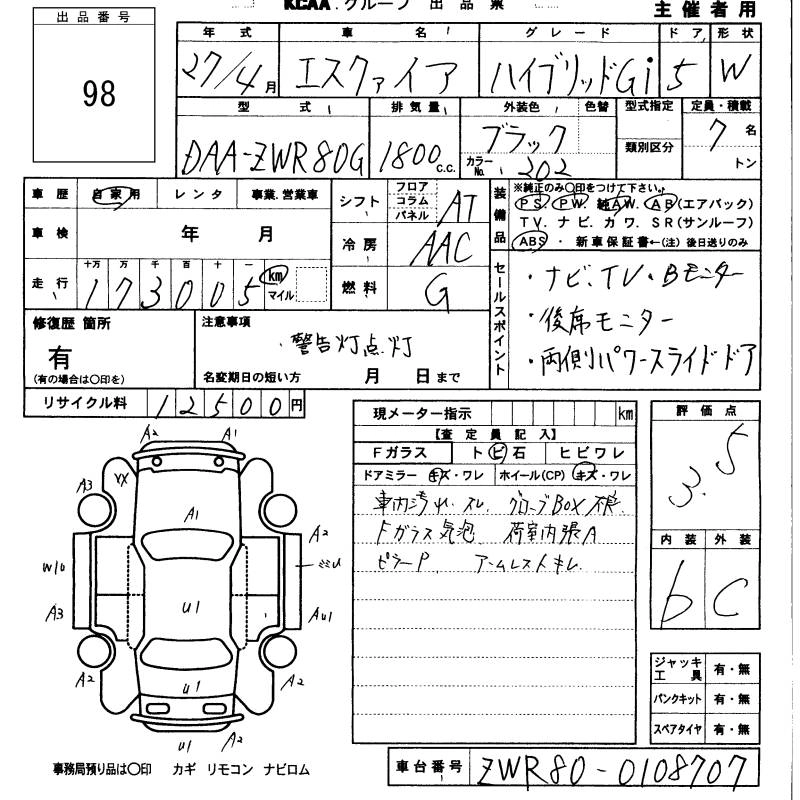 KCAA.グループ 出品票
主催者用
出品番号
98
年式 車名 グレード ドア 形状
27/4月 エスクァイア ハイブリッドGi 5 W
型式 排気量 外装色 色替 型式指定 定員・積載
類別区分
DAA-ZWR80G 1800c.c. ブラック 7名
カラーNo. 202 トン
車歴 自家用 レンタ 事業.営業車
シフト フロア コラム パネル AT
車検 年 月
冷房 AAC
走行 十万 万 千 百 十 一
173005 km マイル
燃料 G
装備品
※純正のみ〇印をつけて下さい。
PS. PW. 純AW. AB(エアバック)
TV. ナビ. カワ. SR(サンルーフ)
ABS ・ 新車保証書←(注)後日送りのみ
セールスポイント
・ナビ、TV・Bモニター
・後席モニター
・両側パワースライドドア
修復歴 箇所
有
(有の場合は〇印を)
注意事項
・警告灯点灯
名変期日の短い方 月 日まで
リサイクル料 12500円
現メーター指示 km
【査定員記入】
Fガラス トビ石 ヒビワレ
ドアミラー キズ・ワレ ホイール(CP) キズ・ワレ
車内汚れ.スレ. グローブBOX
Fガラス気泡. 荷室内張A
ピラーP. アームレストキレ
評価点
3.5
内装 外装
b C
ジャッキ工具 有・無
パンクキット 有・無
スペアタイヤ 有・無
A2 A1
XX
A3
A1
A2
W10
U1
A3 AU1
A2 A2
U1
U1 A2
事務局預り品は〇印 カギ リモコン ナビロム
車台番号 ZWR80-0108707